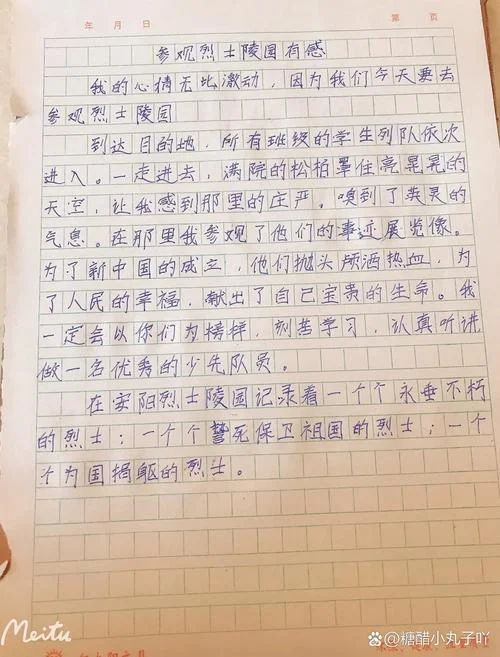 年 月 日
第 页
参观烈士陵园有感
我的心情无比激动，因为我们今天要去
参观烈士陵园
到达目的地，所有班级的学生列队依次
进入。一走进去，满院的松柏罩住亮晃晃的
天空，让我感到那里的庄严。嗅到了英灵的
气息。在那里我参观了他们的事迹展览像。
为了新中国的成立，他们抛头颅洒热血，为
了人民的幸福，献出了自己宝贵的生命。我
一定会以你们为榜样，刻苦学习，认真听讲
做一名优秀的少先队员。
在安阳烈士陵园记录着一个个永垂不朽
的烈士；一个个誓死保卫祖国的烈士；一个
个为国捐躯的烈士。
Meitu
@糖醋小丸子吖